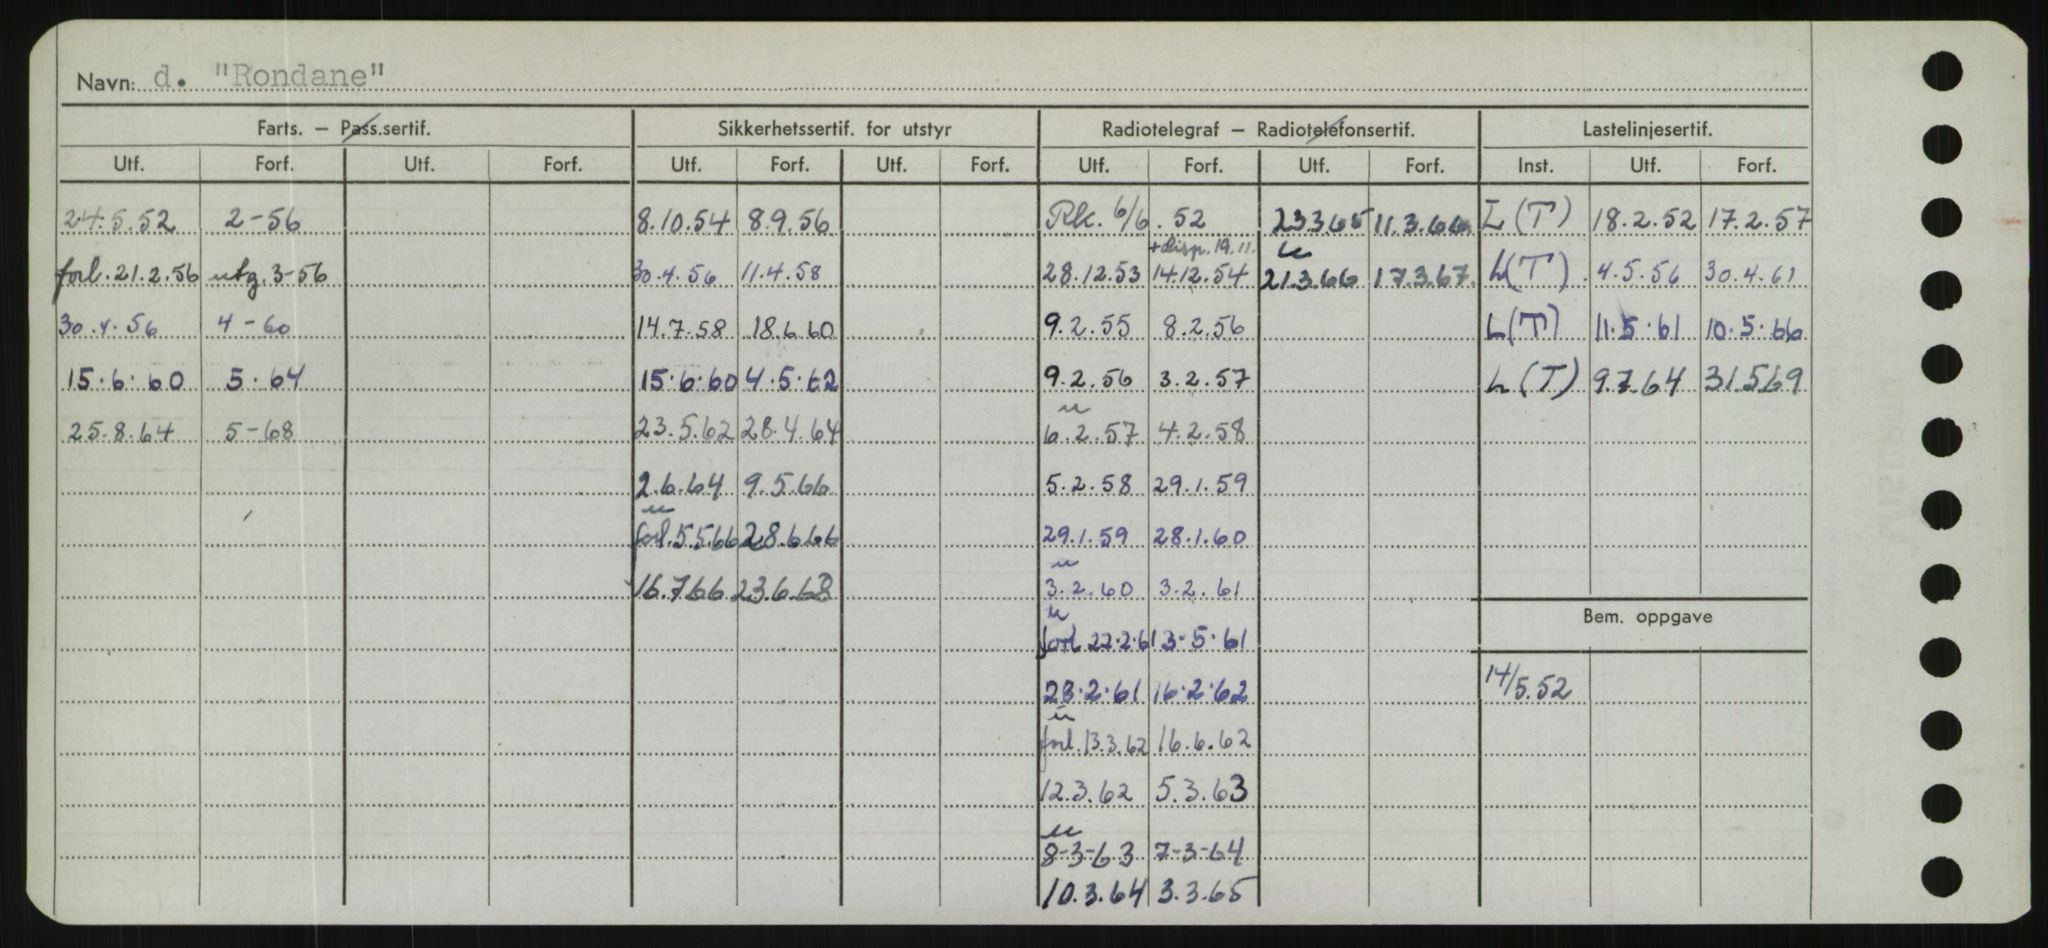 Navn: d. "Rondane"
Farts. – Pass.sertif. Sikkerhetssertif. for utstyr Radiotelegraf – Radiotelefonsertif. Lastelinjesertif.
Utf. Forf. Utf. Forf. Utf. Forf. Utf. Forf. Utf. Forf. Utf. Forf. Inst. Utf. Forf.
24.5.52 2-56 8.10.54 8.9.56 Rk. 6/6.52 23.3.65 11.3.66. L(T) 18.2.52 17.2.57
+disp. 19.11. u
forl.21.2.56 utg.3-56 30.4.56 11.4.58 28.12.53 14.12.54 21.3.66 17.3.67. L(T) 4.5.56 30.4.61
30.4.56 4-60 14.7.58 18.6.60 9.2.55 8.2.56 L(T) 11.5.61 10.5.66
15.6.60 5.64 15.6.60 4.5.62 9.2.56 3.2.57 L(T) 9.7.64 31.5.69
u
25.8.64 5-68 23.5.62 28.4.64 6.2.57 4.2.58
2.6.64 9.5.66 5.2.58 29.1.59
u
forl.5.5.66 28.6.66 29.1.59 28.1.60
u
16.7.66 23.6.68 3.2.60 3.2.61
Bem. oppgave
u
forl 22.2.61 3.5.61
14/5.52
23.2.61 16.2.62
u
forl.13.3.62 16.6.62
12.3.62 5.3.63
u
8-3-63 7-3-64
10.3.64 3.3.65